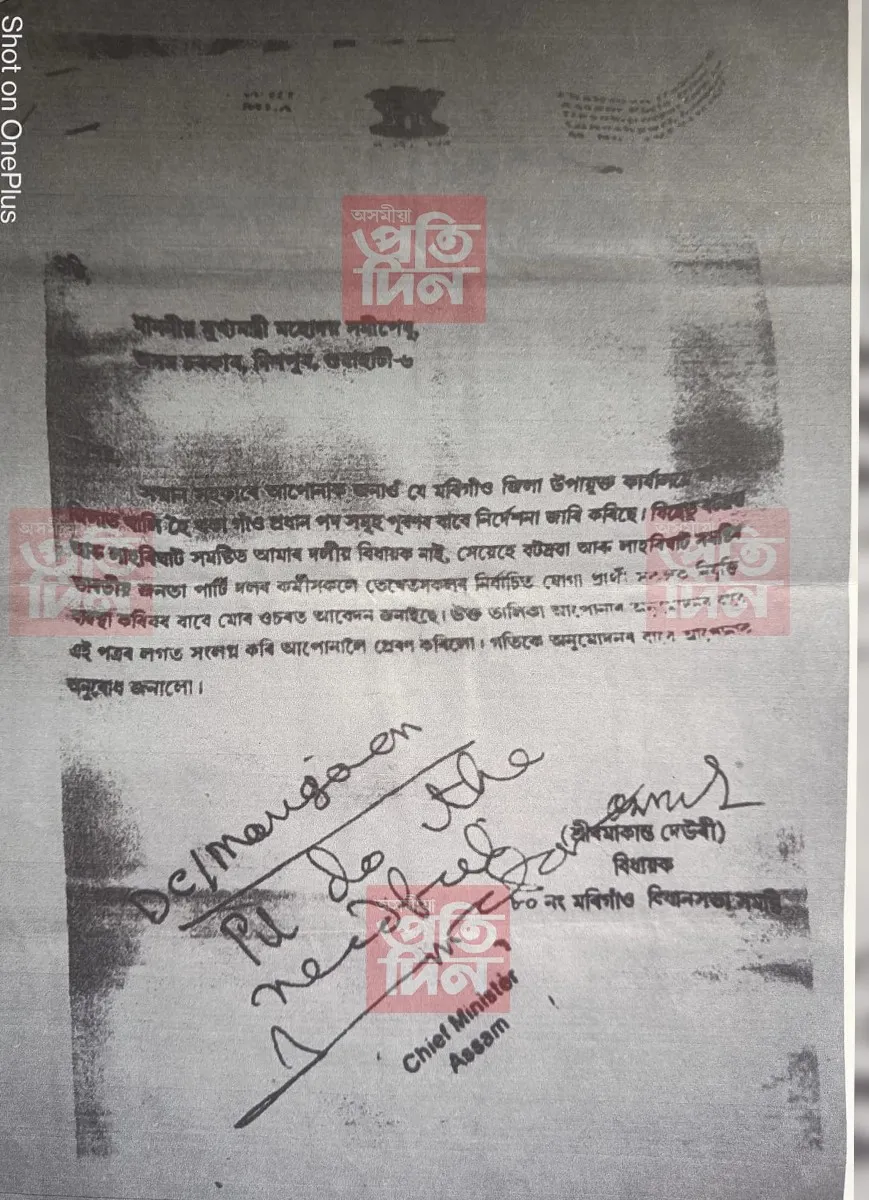 Shot on OnePlus
অসমীয়া
প্ৰতি
দিন
মাননীয় মুখ্যমন্ত্ৰী মহোদয় সমীপেষু,
অসম চৰকাৰ, দিশপুৰ, গুৱাহাটী-৬
সন্মান সহকাৰে আপোনাক জনাওঁ যে মৰিগাঁও জিলা উপায়ুক্ত কাৰ্যালয়ে
খালি হৈ থকা গাঁও প্ৰধান পদ সমূহ পূৰণৰ বাবে নিৰ্দেশনা জাৰি কৰিছে। যিহেতু
আৰু লাহৰিঘাট সমষ্টিত আমাৰ দলীয় বিধায়ক নাই, সেয়েহে বটদ্ৰবা আৰু লাহৰিঘাট সমষ্টিৰ
ভাৰতীয় জনতা পাৰ্টি দলৰ কৰ্মীসকলে তেখেতসকলৰ নিৰ্বাচিত যোগ্য প্ৰাৰ্থী নিযুক্তি
ব্যৱস্থা কৰিবৰ বাবে মোৰ ওচৰত আবেদন জনাইছে। উক্ত তালিকা আপোনাৰ অনুমোদনৰ বাবে
এই পত্ৰৰ লগত সংলগ্ন কৰি আপোনালৈ প্ৰেৰণ কৰিলো। গতিকে অনুমোদনৰ বাবে আপোনাক
অনুৰোধ জনালো।
অসমীয়া
প্ৰতি
দিন
অসমীয়া
প্ৰতি
দিন
DC/Morigaon
Pl do the
needful
(শ্ৰীৰমাকান্ত দেউৰী)
বিধায়ক
৮০ নং মৰিগাঁও বিধানসভা সমষ্টি
প্ৰতি
দিন
Chief Minister
Assam